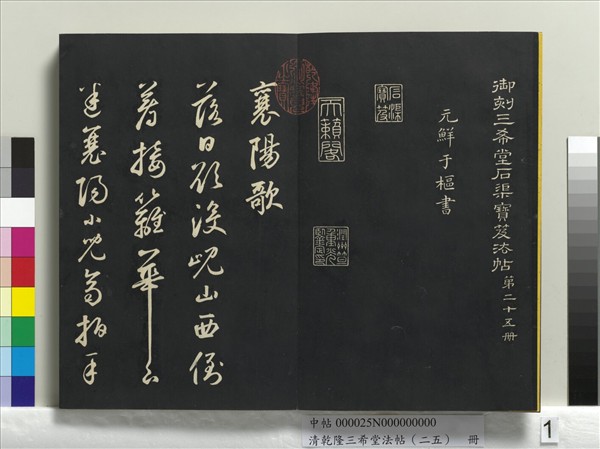 御刻三希堂石渠寶笈法帖 第二十五册
元鮮于樞書
石渠寶笈
天籟閣
襄陽歌
落日欲沒峴山西倒
着接籬華下
迷襄陽小兒齊拍手
中帖 000025N000000000
清乾隆三希堂法帖(二五) 冊
1